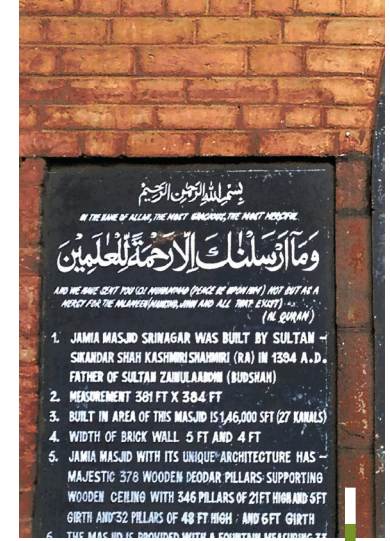 بسم الله الرحمن الرحيم
IN THE NAME OF ALLAH, THE MOST GRACIOUS, THE MOST MERCIFUL
وَمَآ اَرْسَلْنٰكَ اِلَّا رَحْمَةً لِّلْعٰلَمِيْنَ
AND WE HAVE SENT YOU (O! MUHAMMAD (PEACE BE UPON HIM) NOT BUT AS A
MERCY FOR THE ALAMEEN (MANKIND, JINN AND ALL THAT EXIST)
(AL QURAN)
1. JAMIA MASJID SRINAGAR WAS BUILT BY SULTAN -
SIKANDAR SHAH KASHMIRI SHAHMIRI (RA) IN 1394 A.D.
FATHER OF SULTAN ZAINULAABDIN (BUDSHAH)
2. MEASUREMENT 381 FT X 384 FT
3. BUILT IN AREA OF THIS MASJID IS 1,46,000 SFT (27 KANALS)
4. WIDTH OF BRICK WALL 5 FT AND 4 FT
5. JAMIA MASJID WITH ITS UNIQUE ARCHITECTURE HAS -
MAJESTIC 378 WOODEN DEODAR PILLARS SUPPORTING
WOODEN CEILING WITH 346 PILLARS OF 21 FT HIGH AND 5 FT
GIRTH AND 32 PILLARS OF 48 FT HIGH AND 6 FT GIRTH
6. THE MASJID IS PROVIDED WITH A FOUNTAIN MEASURING 33